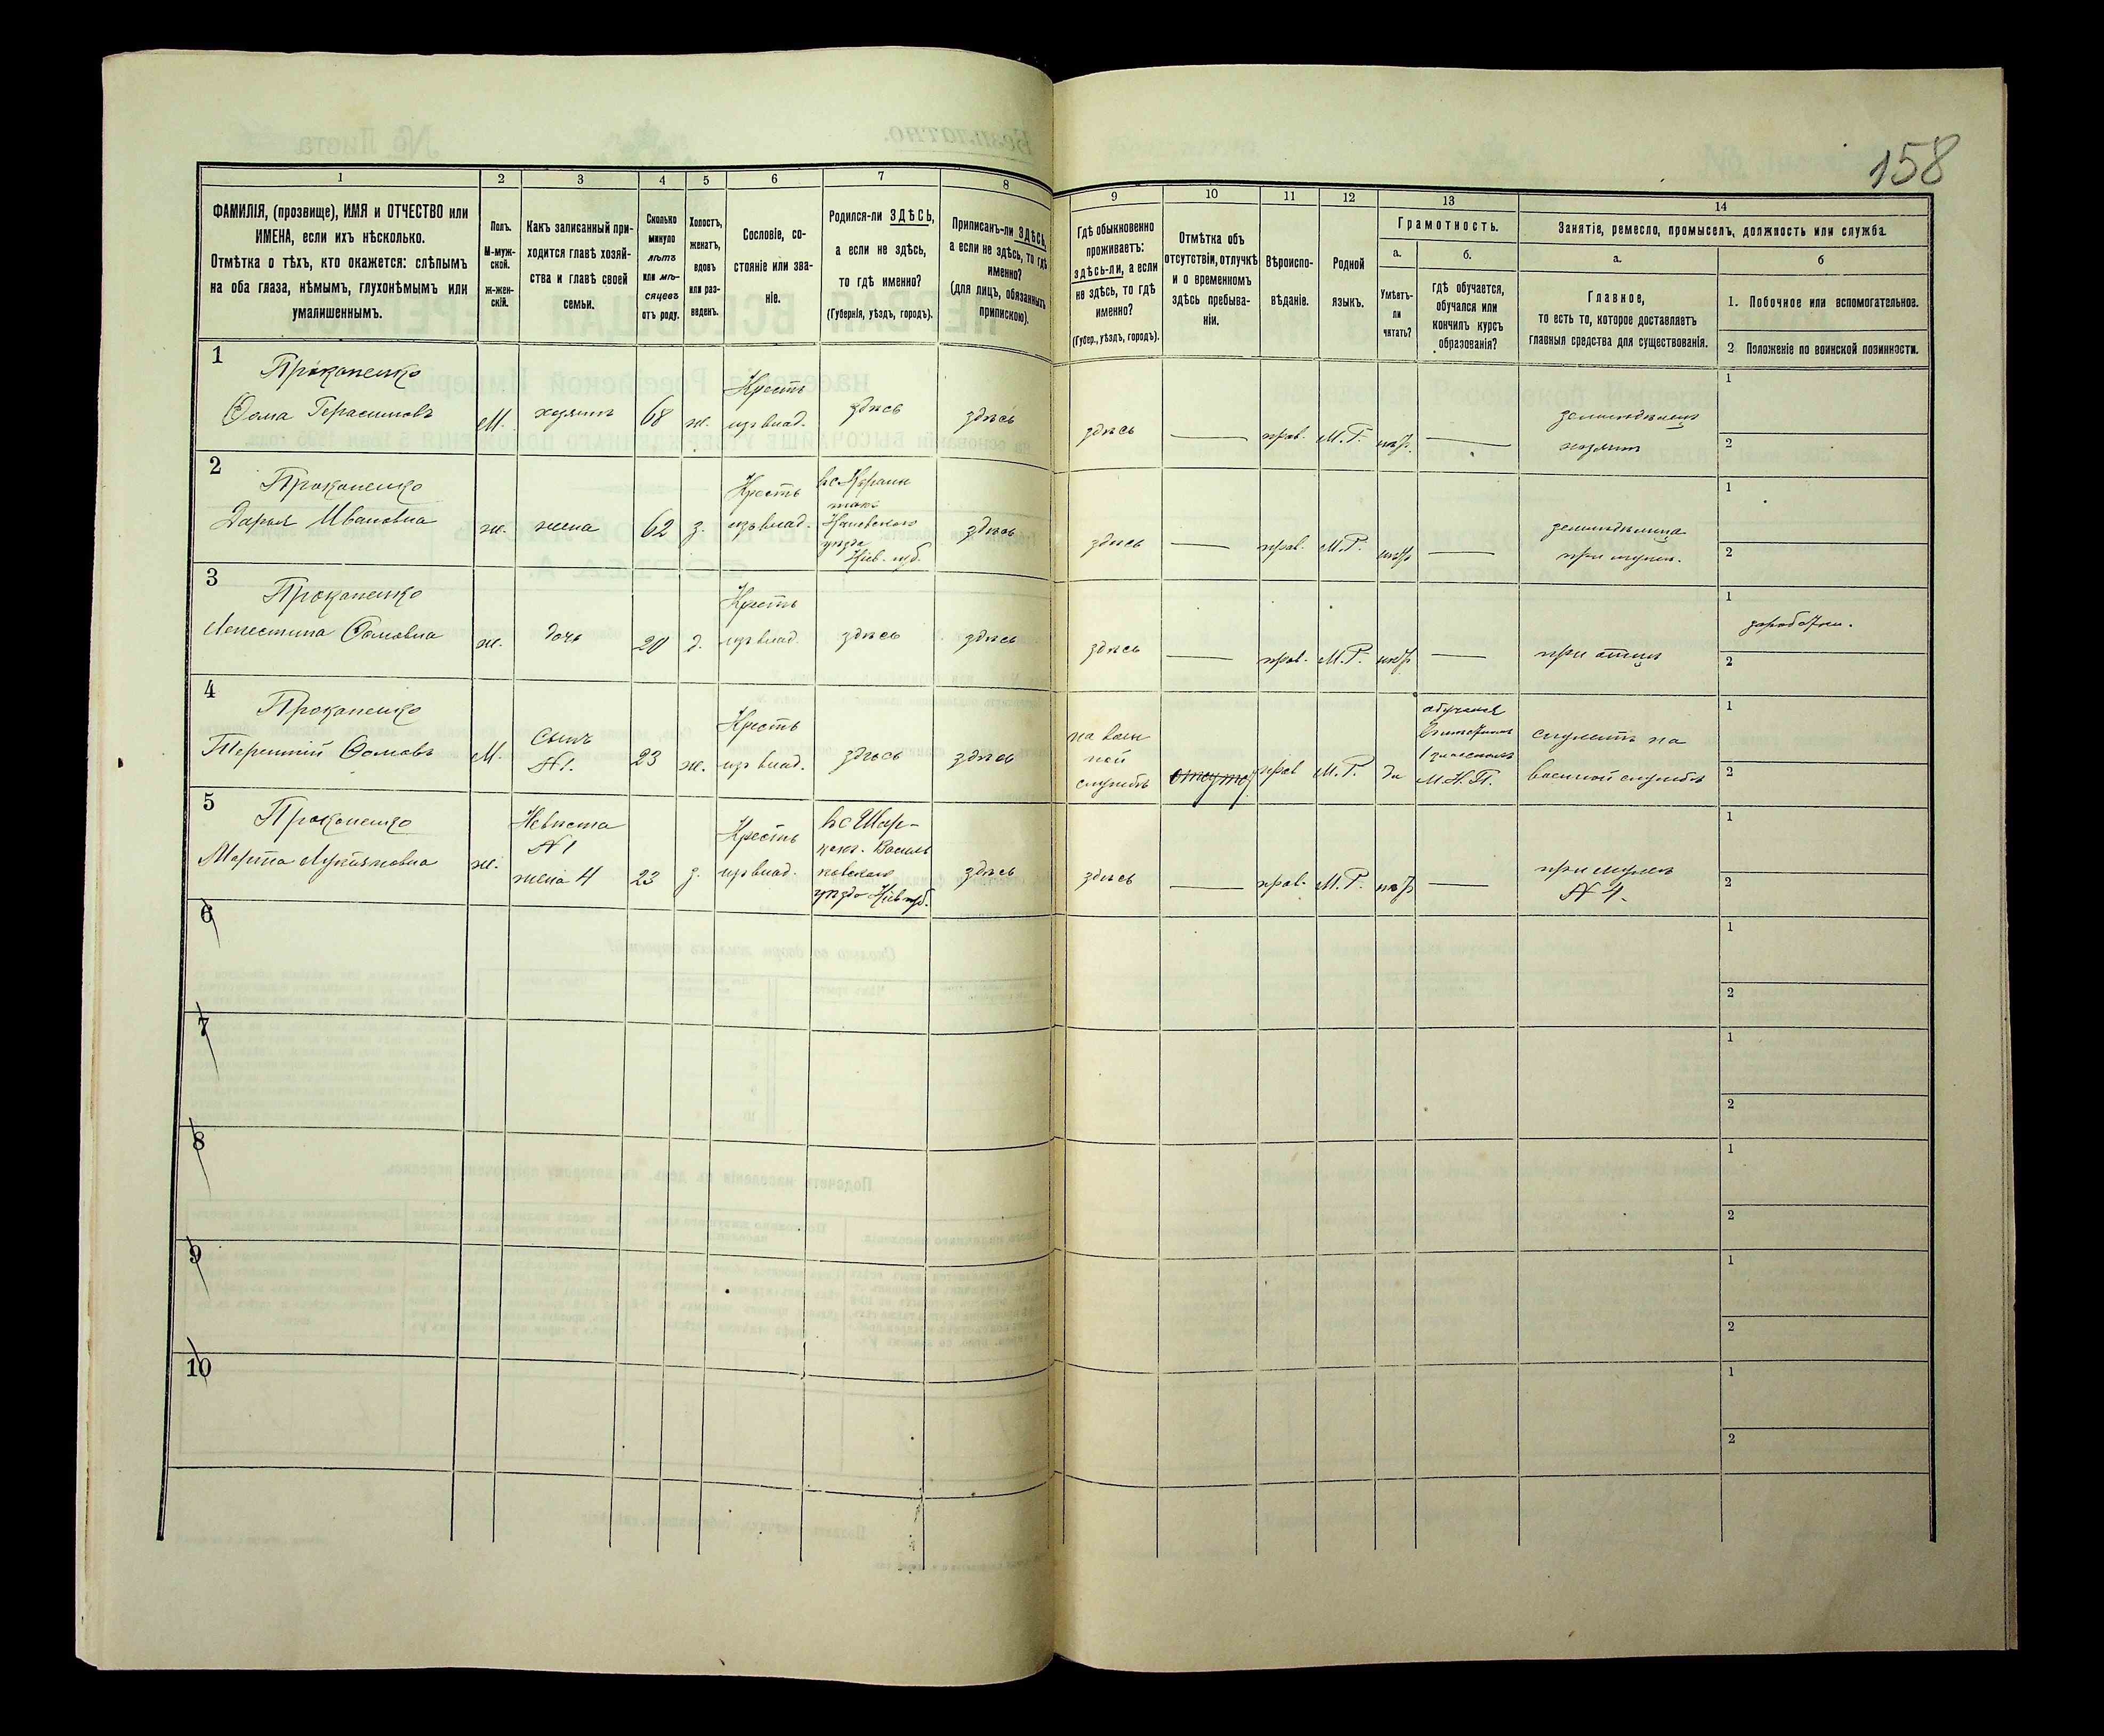 158
1 2 3 4 5 6 7 8 9 10 11 12 13 14
ФАМИЛІЯ, (прозвище), ИМЯ и ОТЧЕСТВО или
ИМЕНА, если ихъ нѣсколько.
Отмѣтка о тѣхъ, кто окажется: слѣпымъ
на оба глаза, нѣмымъ, глухонѣмымъ или
умалишеннымъ.
Полъ.
М-муж-
ской.
Ж-жен-
скій.
Какъ записанный при-
ходится главѣ хозяй-
ства и главѣ своей
семьи.
Сколько
минуло
лѣтъ
или мѣ-
сяцевъ
отъ роду.
Холостъ,
женатъ,
вдовъ
или раз-
веденъ.
Сословіе, со-
стояніе или зва-
ніе.
Родился-ли ЗДѢСЬ,
а если не здѣсь,
то гдѣ именно?
(Губернія, уѣздъ, городъ).
Приписанъ-ли ЗДѢСЬ,
а если не здѣсь, то гдѣ
именно?
(для лицъ, обязанныхъ
припискою).
Гдѣ обыкновенно
проживаетъ:
здѣсь-ли, а если
не здѣсь, то гдѣ
именно?
(Губер., уѣздъ, городъ).
Отмѣтка объ
отсутствіи, отлучкѣ
и о временномъ
здѣсь пребыва-
ніи.
Вѣроиспо-
вѣданіе.
Родной
языкъ.
Грамотность.
а.
Умѣетъ-
ли
читать?
б.
гдѣ обучается,
обучался или
кончилъ курсъ
образованія?
Занятіе, ремесло, промыселъ, должность или служба.
а.
Главное,
то есть то, которое доставляетъ
главныя средства для существованія.
б
1. Побочное или вспомогательное.
2. Положеніе по воинской повинности.
1
Прокопенко
Ѳома Герасимовъ
М.
хозяинъ
68
ж.
Крестъ
изъ влад.
здѣсь
здѣсь
здѣсь
прав.
М.Р.
нѣтъ
земледѣлецъ
хозяинъ
1
2
2
Прокопенко
Дарья Ивановна
ж.
жена
62
з.
Крестъ
изъ влад.
Каневскаго
уѣзда
Кіев. губ.
здѣсь
здѣсь
прав.
М.Р.
нѣтъ
земледѣлица
при мужѣ.
1
2
3
Прокопенко
Ѳомовна
ж.
дочь
20
д.
Крестъ
изъ влад.
здѣсь
здѣсь
здѣсь
прав.
М.Р.
нѣтъ
при отцѣ
1
2
4
Прокопенко
Терентій Ѳомовъ
М.
Сынъ
№1.
23
ж.
Крестъ
изъ влад.
здѣсь
здѣсь
на воен
ной
службѣ
прав
М.Р.
да
обучался
М.Н.П.
служитъ на
военной службѣ
1
2
5
Прокопенко
Марѳа Лукіяновна
ж.
Невѣста
№1
жена 4
23
з.
Крестъ
изъ влад.
Василь
ковскаго
уѣзда Кіев губ.
здѣсь
здѣсь
прав.
М.Р.
нѣтъ
при мужѣ
№ 4.
1
2
6
1
2
7
1
2
8
1
2
9
1
2
10
1
2